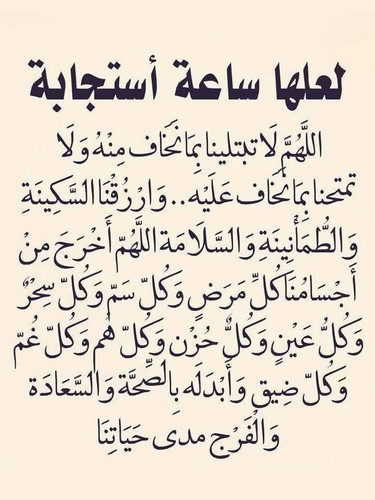 لعلها ساعة أستجابة
اللَّهُمَّ لَا تبتلينا بِمَا نَخَاف مِنْهُ وَلَا
تمتحنا بِمَا نَخَاف عَلَيْه.. وَارْزُقْنَا السَّكِينَةِ
وَالطُّمَأْنِينَةِ وَالسَّلَامَة اللَّهُمّ أَخْرَجَ مِنْ
أَجْسَامُنَا كُلِّ مَرَضٍ وَكُلّ سَمّ وَكُلّ سِحْرٌ
وَكُلُّ عَيْنٍ وَكُلٌّ حُزْن وَكُلّ هُم وَكُلّ غُمّ
وَكُلّ ضِيق وَأَبْدَلَه بِالصِّحَّة وَالسَّعَادَة
وَالْفَرْج مدى حَيَاتِنَا